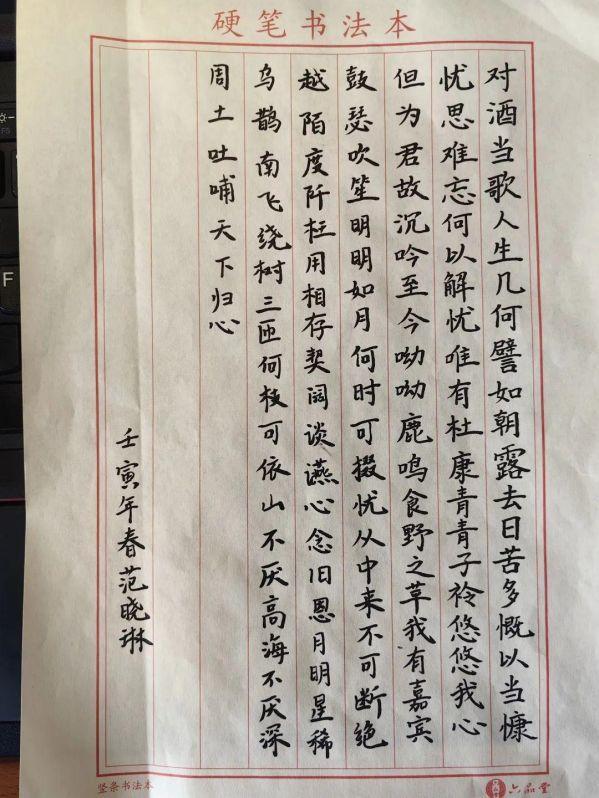 硬笔书法本
对酒当歌人生几何譬如朝露去日苦多慨以当慷
忧思难忘何以解忧唯有杜康青青子衿悠悠我心
但为君故沉吟至今呦呦鹿鸣食野之草我有嘉宾
鼓瑟吹笙明明如月何时可掇忧从中来不可断绝
越陌度阡枉用相存契阔谈䜩心念旧恩月明星稀
乌鹊南飞绕树三匝何枝可依山不厌高海不厌深
周土吐哺天下归心
壬寅年春范晓琳
竖条书法本
六品堂
F
F5